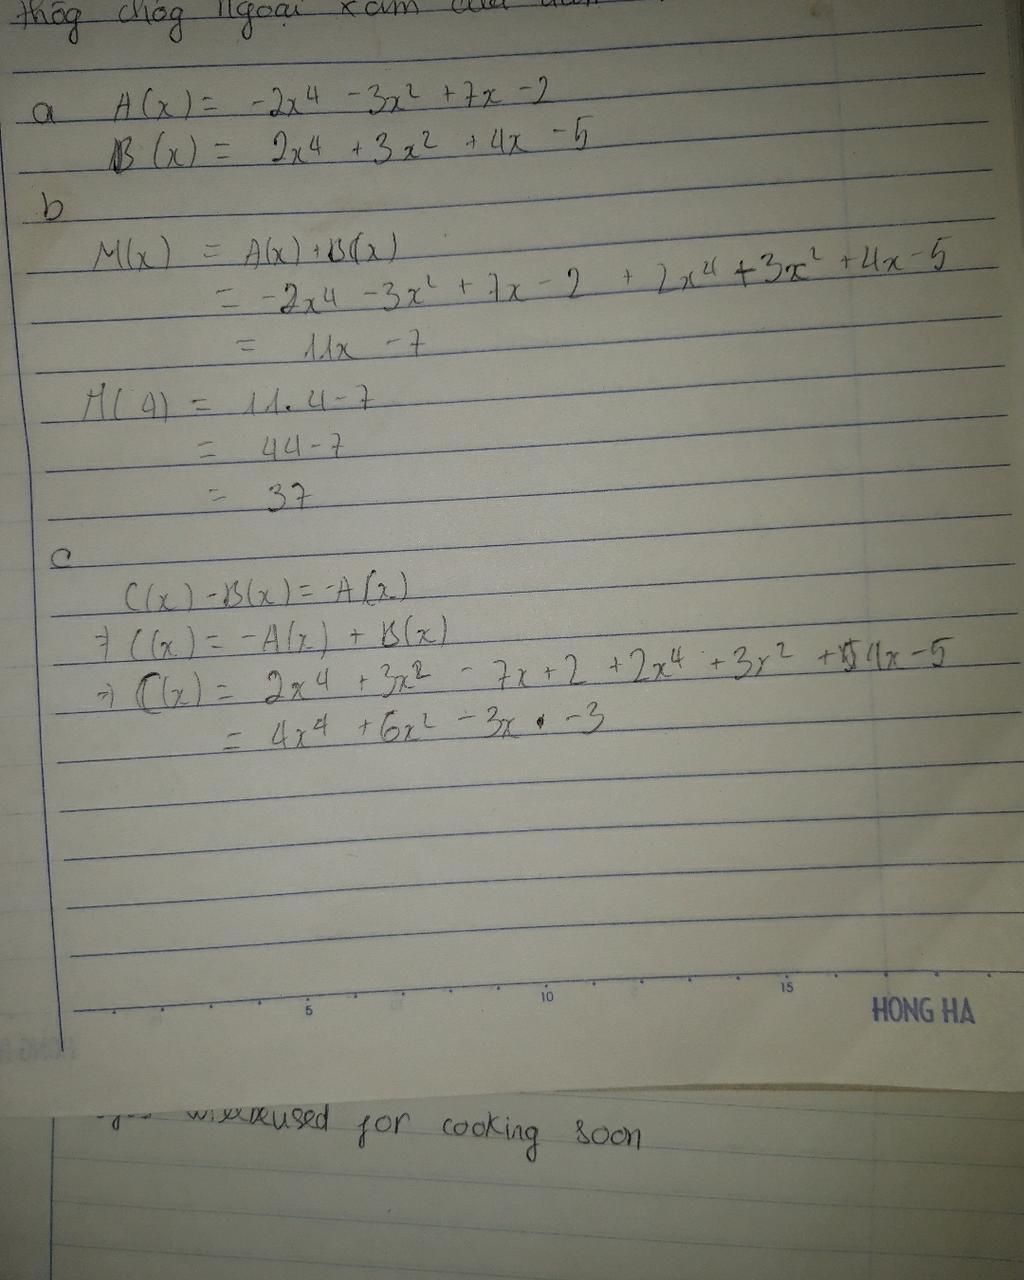 thốg chốg ngoại xâm của dân
a A(x) = -2x⁴ -3x² +7x -2
B(x) = 2x⁴ +3x² +4x -5
b
M(x) = A(x)+B(x)
= -2x⁴ -3x² + 7x - 2 + 2x⁴ +3x² +4x-5
= 11x -7
M(4) = 11.4-7
= 44-7
= 37
c
C(x) -B(x) = -A(x)
⇒ C(x) = -A(x) + B(x)
⇒ C(x) = 2x⁴ +3x² - 7x+2 +2x⁴ +3x² + 4x-5
= 4x⁴ +6x² -3x -3
5 10 15
HONG HA
used for cooking soon